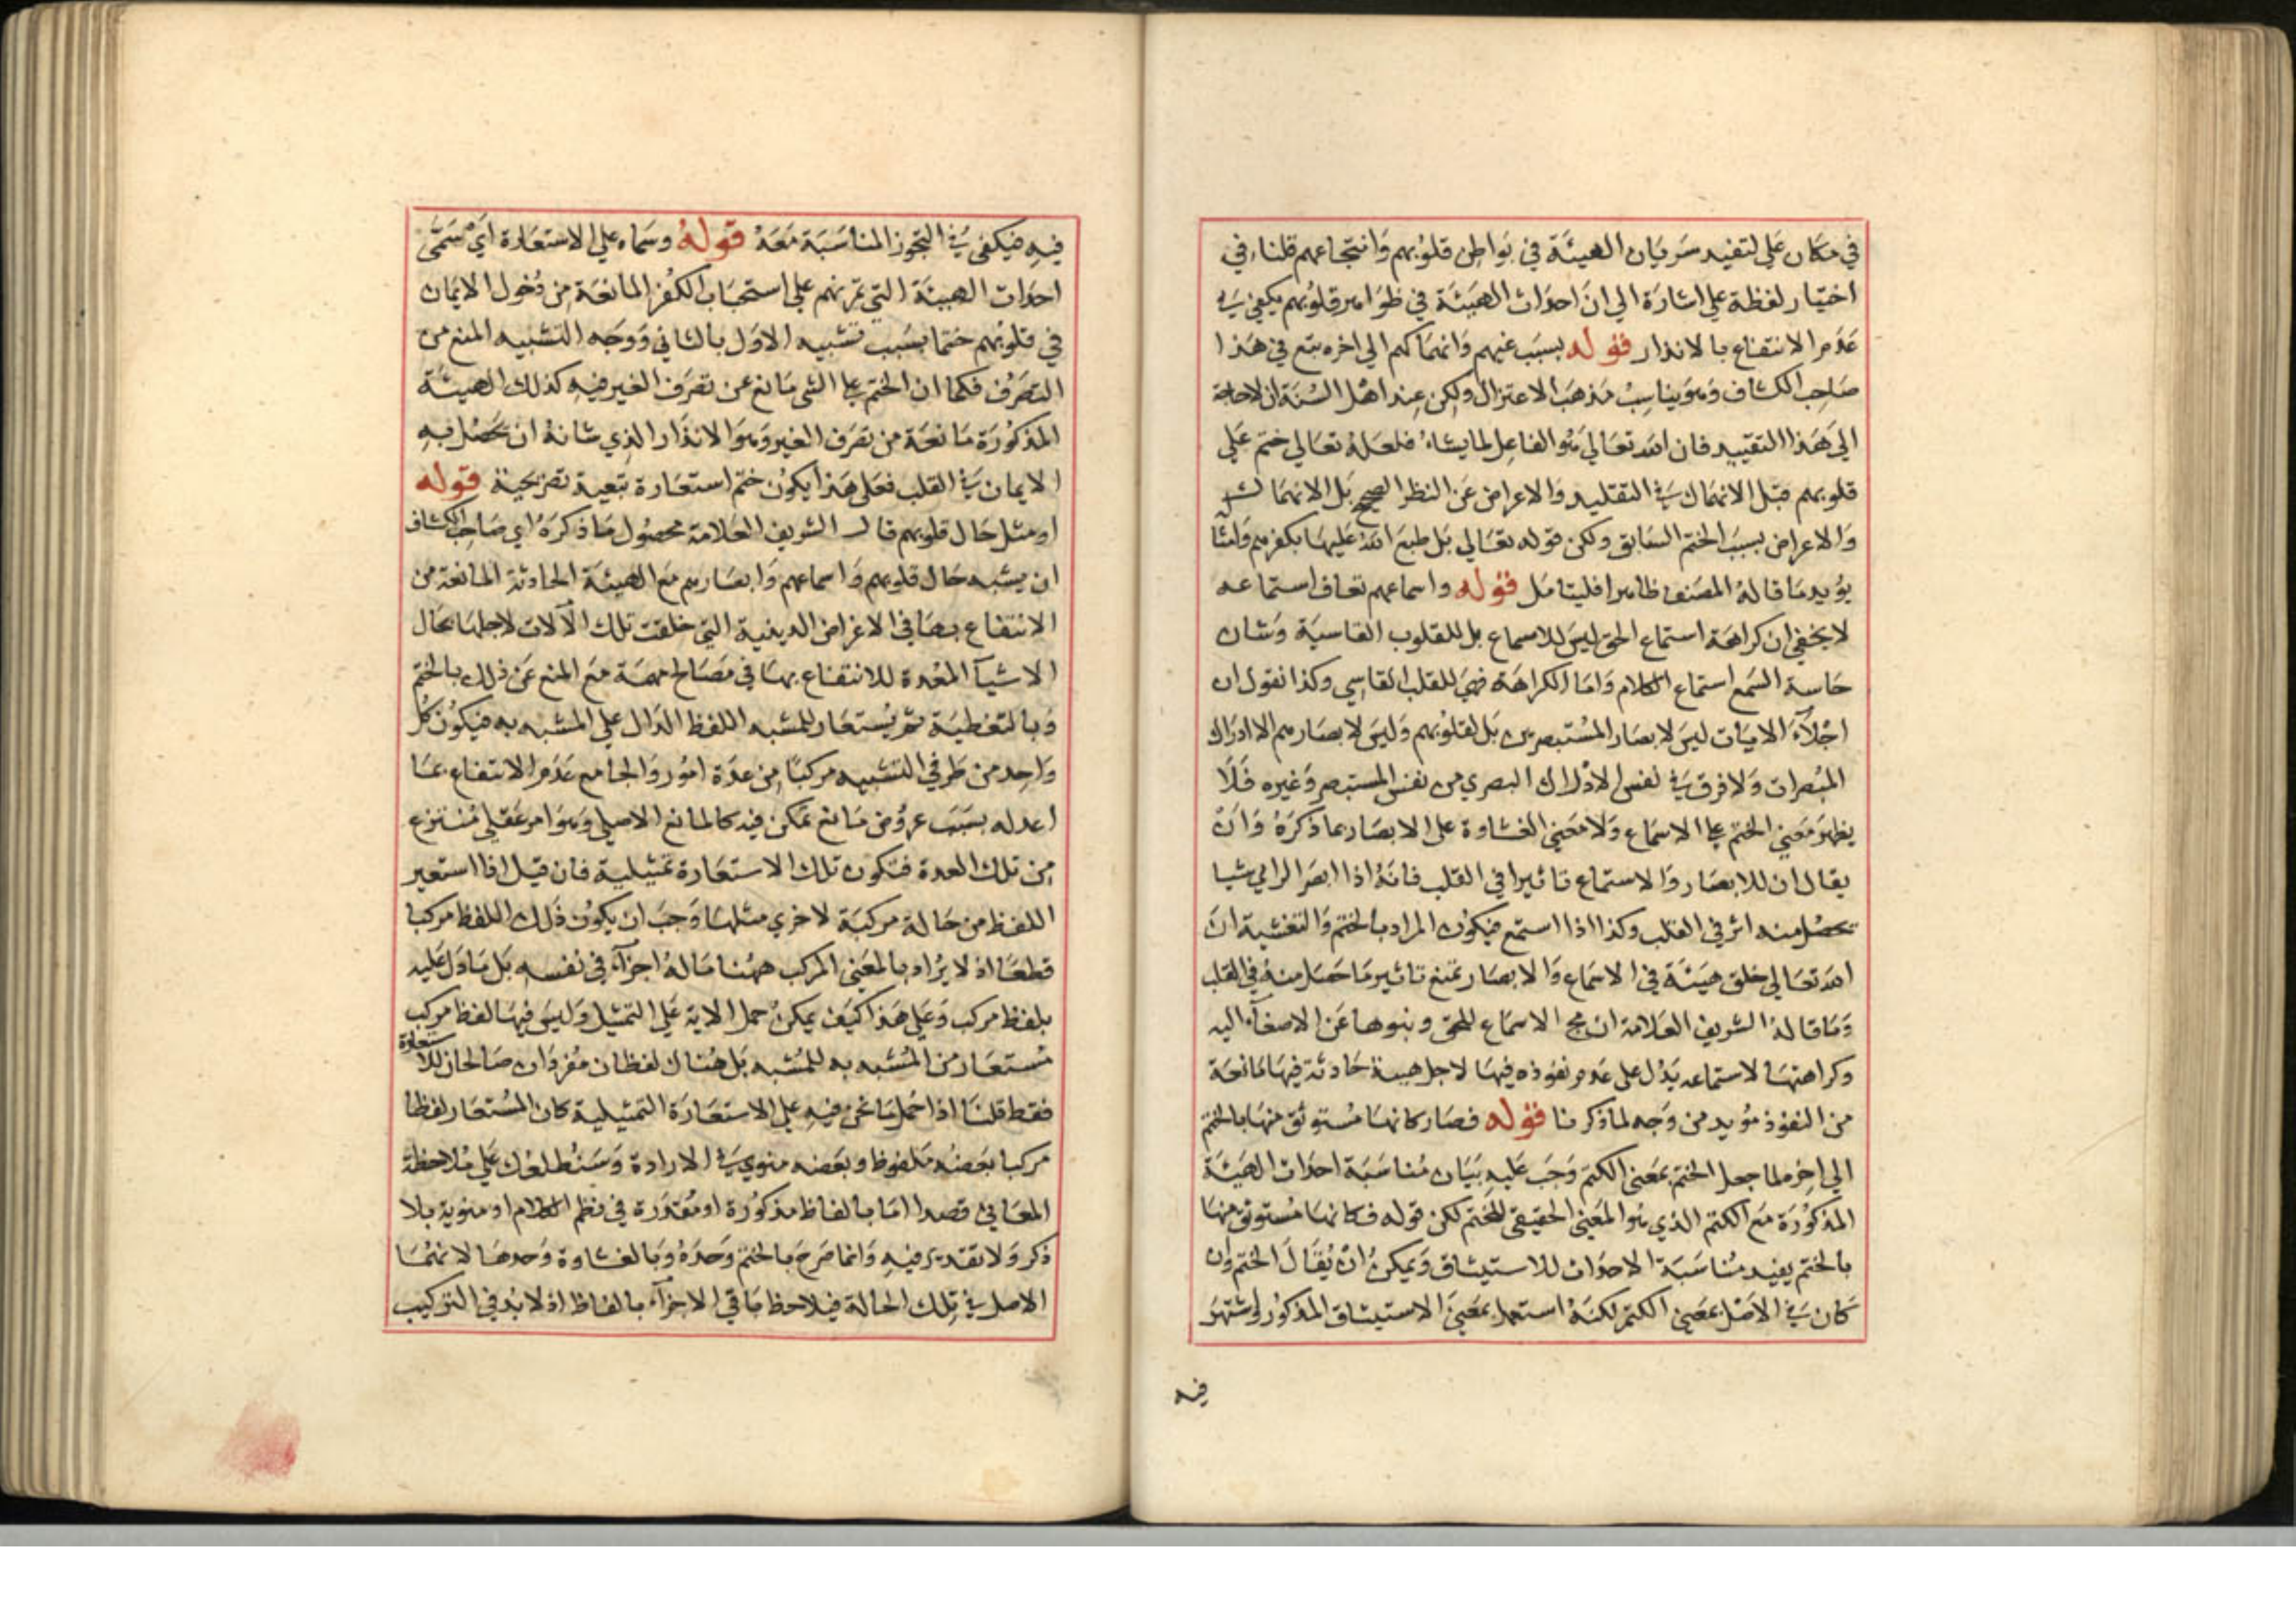 في مكان على لتفيد سريان الهيئة في بواطن قلوبهم وانتجاعهم قلنا في
اختيار لفظة على اشارة الي ان احداث الهيئة في ظواهر قلوبهم يكفي في
عدم الانتفاع بالانذار قوله بسبب غيهم وانهماكهم الي اخره يتبع في هذا
صاحب الكشاف وهو يناسب مذهب الاعتزال ولكن عند اهل السنة ان لا حاجة
الي هذا التقييد فان الله تعالي هو الفاعل لما يشاء فلعله تعالي ختم علي
قلوبهم قبل الانهماك في التقليد والاعراض عن النظر الصحيح بل الانهماك
والاعراض بسبب الختم السابق ولكن قوله تعالي بل طبع الله عليها بكفرهم وامثا
يؤيد ما قاله المصنف ظاهرا فليتامل قوله واسماعهم تعاف استماعه
لا يخفي ان كراهة استماع الحق ليس للاسماع بل للقلوب القاسية وشان
حاسة السمع استماع الكلام واما الكراهة فهي للقلب القاسي وكذا نقول ان
اجتلاء الايات ليس لابصار المستبصرين بل لقلوبهم وليس لابصارهم الا ادراك
المبصرات ولا فرق في نفس الادراك البصري من نفس المستبصر وغيره فلا
يظهر معني الختم علي الاسماع ولا معني الغشاوة على الابصار بما ذكره وان
يقال ان للابصار والاستماع تاثيرا في القلب فانه اذا ابصر الرامي شيا
تحصل منه اثر في القلب وكذا اذا استمع فيكون المراد بالختم والتغشية ان
الله تعالي خلق هيئة في الاسماع والابصار تمنع تاثير ما حصل منه في القلب
وما قاله الشريف العلامة ان مج الاسماع للحق ونبوها عن الاصغاء اليه
وكراهتها لاستماعه يدل على عدم نفوذه فيها لاجل هيئة حادثة فيها مانعة
من النفوذ مؤيد من وجه لما ذكرنا قوله فصار كانها مستوثق منها بالختم
الي اخره لما جعل الختم بمعني الكتم وجب عليه بيان مناسبة احداث الهيئة
المذكورة مع الكتم الذي هو المعني الحقيقي للختم لكن قوله فكانها مستوثق منها
بالختم يفيد مناسبة الاحداث للاستيثاق ويمكن ان يقال الختم وان
كان في الاصل بمعني الكتم لكنه استعمل بمعني الاستيثاق المذكور واشتهر
فيه
فيه فيكفي في التجوز المناسبة معه قوله وسماه علي الاستعارة اي سمي
احداث الهيئة التي تمرنهم علي استحباب الكفر المانعة من دخول الايمان
في قلوبهم ختما بسبب تشبيه الاول بالثاني ووجه التشبيه المنع من
التصرف فكما ان الختم علي الشي مانع عن تصرف الغير فيه كذلك الهيئة
المذكورة مانعة من تصرف الغير وهو الانذار الذي شانه ان يحصل به
الايمان في القلب فعلى هذا يكون ختم استعارة تبعية تصريحية قوله
او مثل حال قلوبهم قال الشريف العلامة محصول ما ذكره اي صاحب الكشاف
ان يشبه حال قلوبهم واسماعهم وابصارهم مع الهيئة الحادثة المانعة من
الانتفاع بها في الاغراض الدينية التي خلقت تلك الآلات لاجلها بحال
الاشيآ المعدة للانتفاع بها في مصالح مهمة مع المنع عن ذلك بالختم
وبالتغطية ثم يستعار للمشبه اللفظ الدال علي المشبه به فيكون كل
واحد من طرفي التشبيه مركبا من عدة امور والجامع عدم الانتفاع بما
اعد له بسبب عروض مانع تمكن فيه كالمانع الاصلي وهو امر عقلي منتزع
من تلك العدة فتكون تلك الاستعارة تمثيلية فان قيل اذا استعير
اللفظ من حالة مركبة لاخري مثلها وجب ان يكون ذلك اللفظ مركبا
قطعا اذ لا يراد بالمعني المركب ههنا ما له اجزآء في نفسه بل ما دل عليه
بلفظ مركب وعلي هذا كيف يمكن حمل الاية علي التمثيل وليس فيها لفظ مركب
مستعار من المشبه به للمشبه بل هناك لفظان مفردان صالحان للاستعارة
فقط قلنا اذا حمل ما نحن فيه علي الاستعارة التمثيلية كان المستعار لفظا
مركبا بعضه ملفوظ وبعضه منوي في الارادة وسنطلعك علي ملاحظة
المعاني قصدا اما بالفاظ مذكورة او مقدرة في نظم الكلام او منوية بلا
ذكر ولا تقدير فيه وانما صرح بالختم وحده وبالغشاوة وحدها لانهما
الاصل في تلك الحالة فيلاحظ باقي الاجزآء بالفاظ اذ لا بد في التركيب